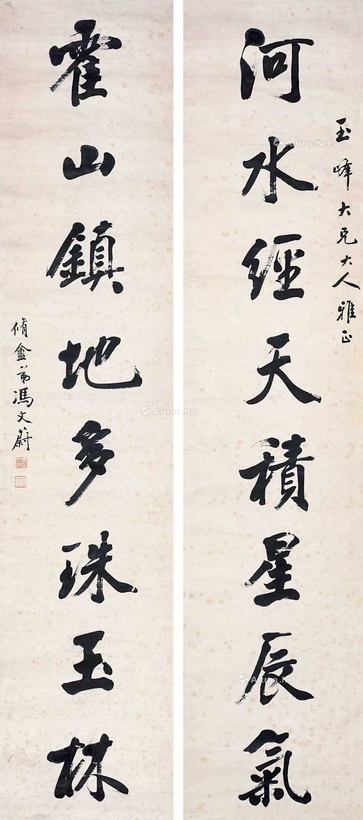 玉峰大兄大人雅正
河水經天積星辰氣
霍山鎮地多珠玉林
脩盦弟馮文蔚